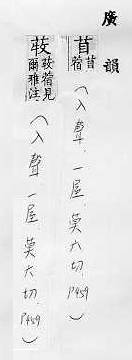 廣韻
苜 苜蓿（入聲，一屋，莫六切，P459）
蓿見爾雅注（入聲，一屋，莫六切，P459）